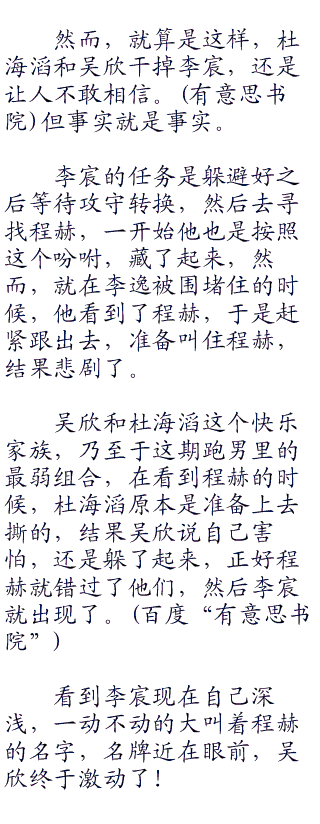 然而，就算是这样，杜
海滔和吴欣干掉李宸，还是
让人不敢相信。(有意思书
院)但事实就是事实。
李宸的任务是躲避好之
后等待攻守转换，然后去寻
找程赫，一开始他也是按照
这个吩咐，藏了起来，然
而，就在李逸被围堵住的时
候，他看到了程赫，于是赶
紧跟出去，准备叫住程赫，
结果悲剧了。
吴欣和杜海滔这个快乐
家族，乃至于这期跑男里的
最弱组合，在看到程赫的时
候，杜海滔原本是准备上去
撕的，结果吴欣说自己害
怕，还是躲了起来，正好程
赫就错过了他们，然后李宸
就出现了。(百度“有意思书
院”)
看到李宸现在自己深
浅，一动不动的大叫着程赫
的名字，名牌近在眼前，吴
欣终于激动了！